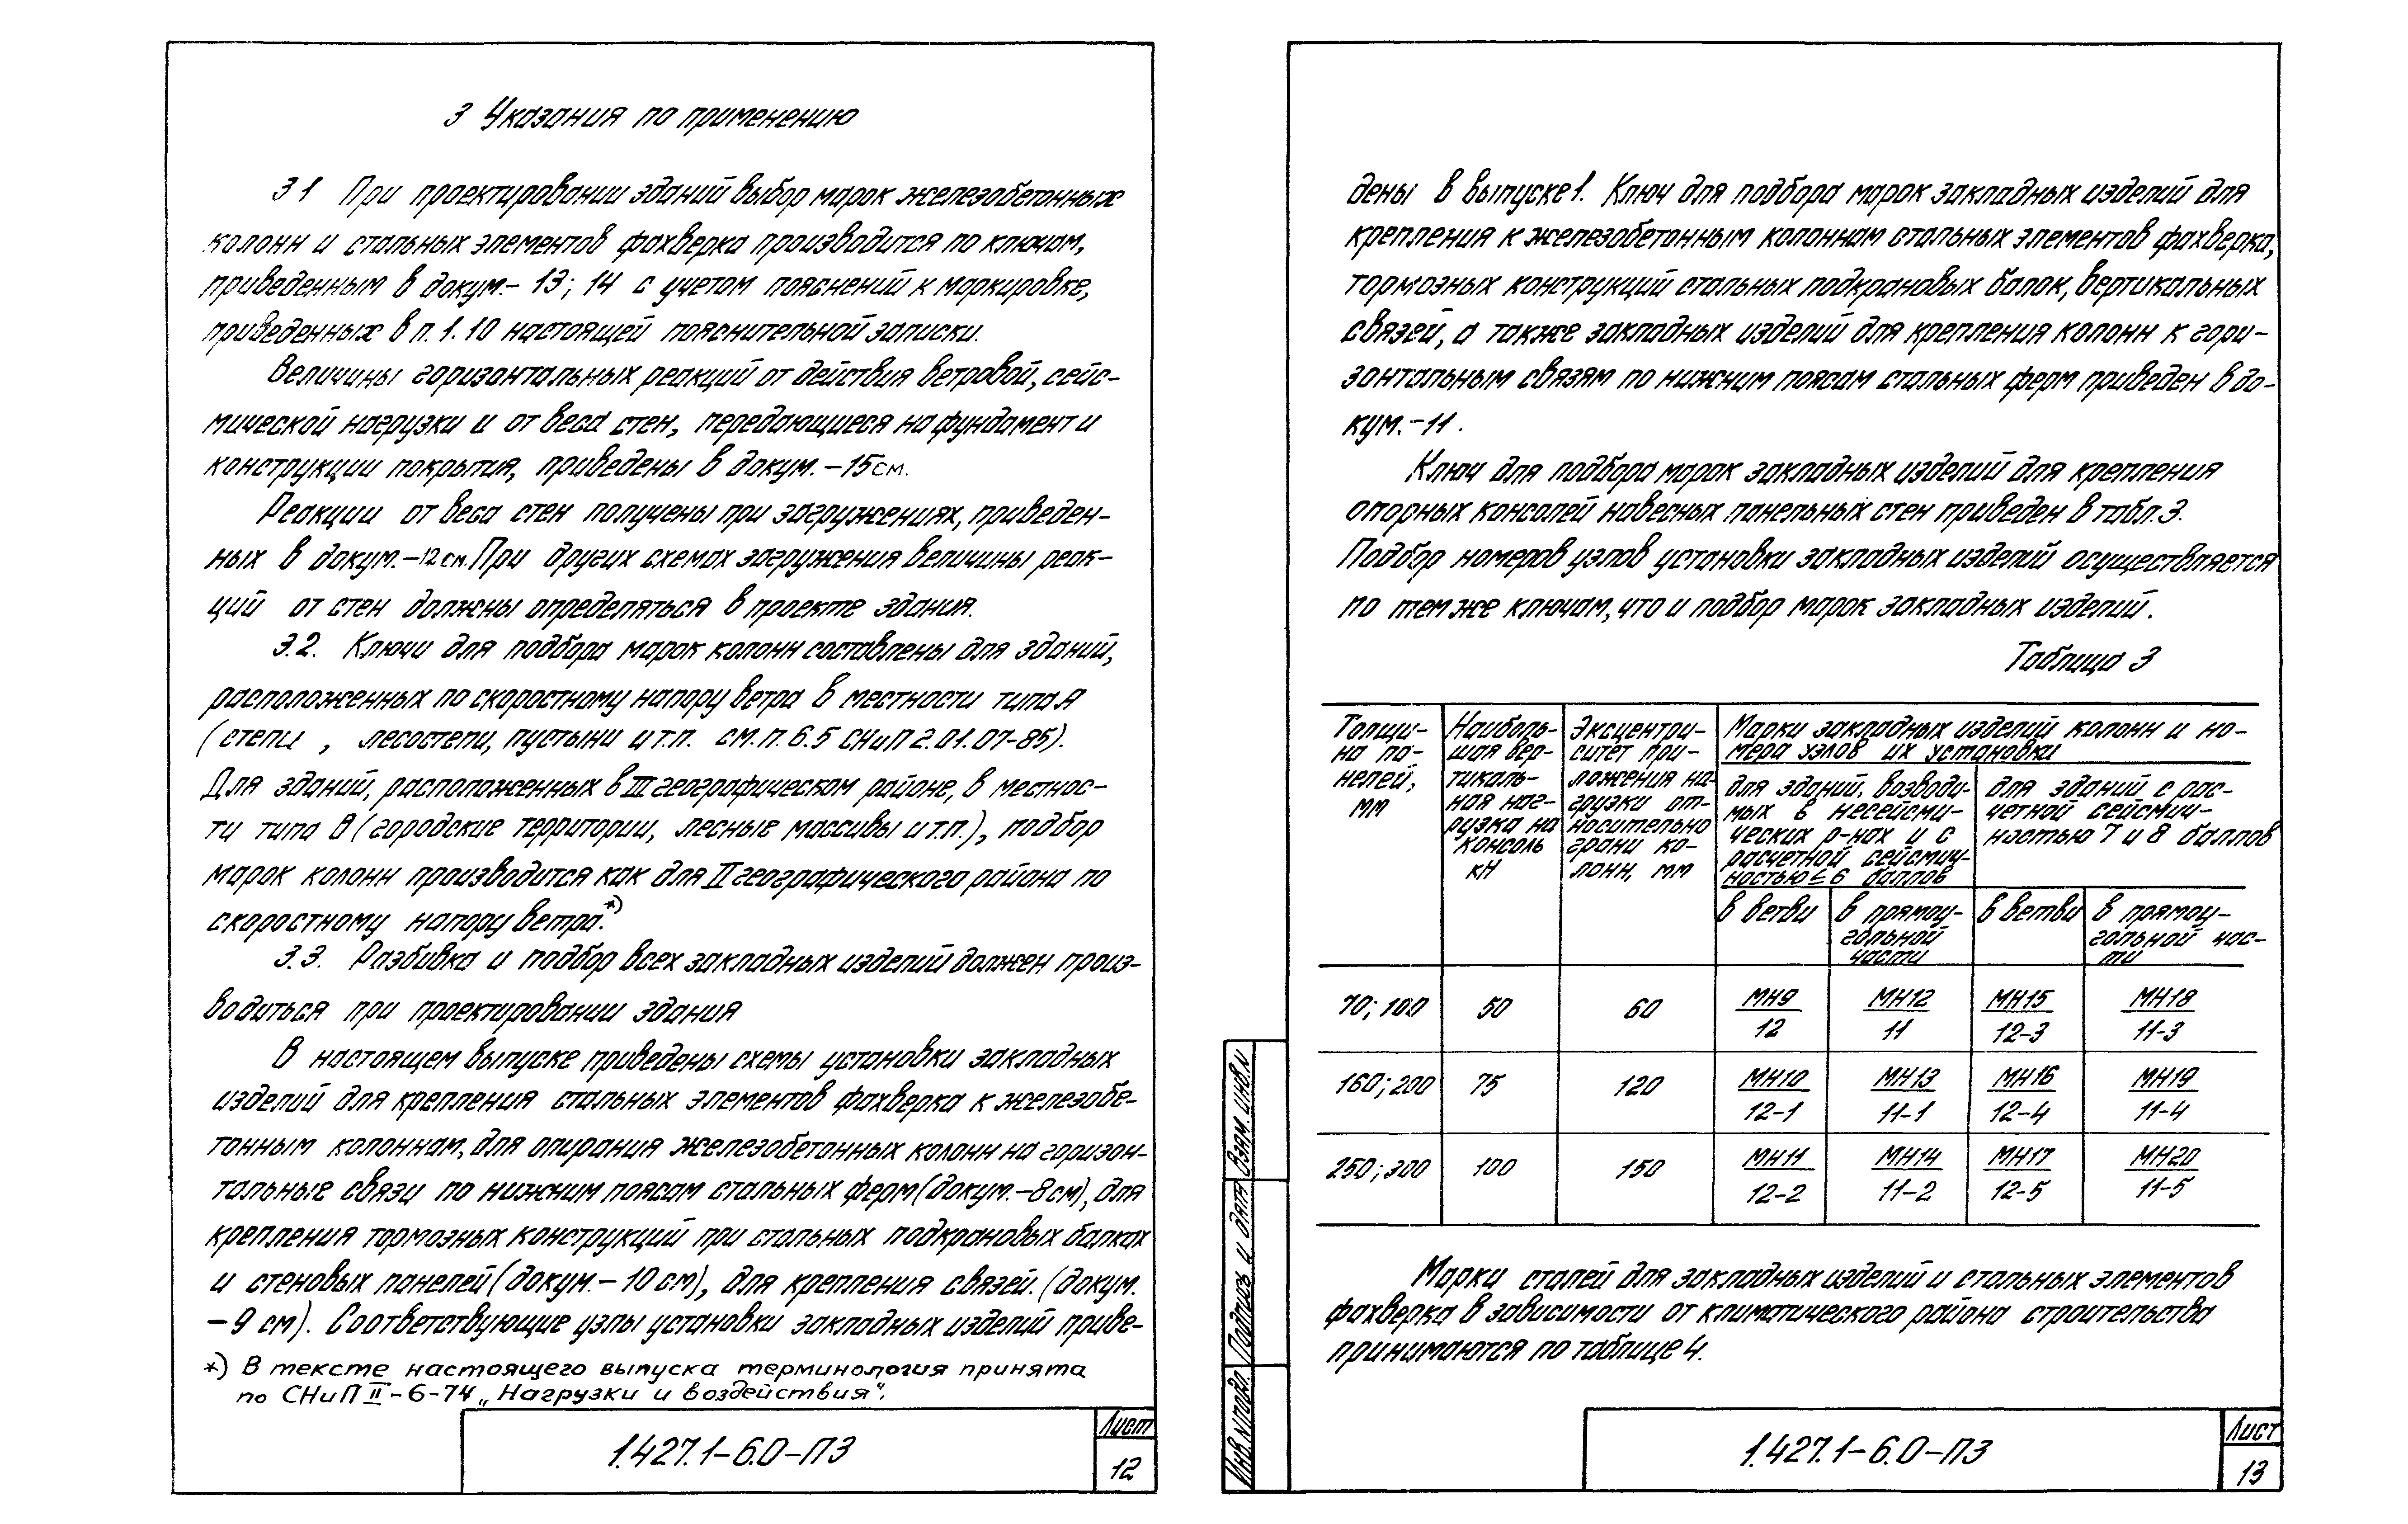 3 Указания по применению
3.1 При проектировании зданий выбор марок железобетонных
колонн и стальных элементов фахверка производится по ключам,
приведенным в докум.- 13; 14 с учетом пояснений к маркировке,
приведенных в п. 1.10 настоящей пояснительной записки.
Величины горизонтальных реакций от действия ветровой, сейс-
мической нагрузки и от веса стен, передающиеся на фундамент и
конструкции покрытия, приведены в докум. -15см.
Реакции от веса стен получены при загружениях, приведен-
ных в докум.-12см. При других схемах загружения величины реак-
ций от стен должны определяться в проекте здания.
3.2. Ключи для подбора марок колонн составлены для зданий,
расположенных по скоростному напору ветра в местности типа А
(степи , лесостепи, пустыни и т.п. см. п. 6.5 СНиП 2.01.07-85).
Для зданий, расположенных в III географическом районе, в местнос-
ти типа В (городские территории, лесные массивы и т.п.), подбор
марок колонн производится как для II географического района по
скоростному напору ветра.*)
3.3. Разбивка и подбор всех закладных изделий должен произ-
водиться при проектировании здания
В настоящем выпуске приведены схемы установки закладных
изделий для крепления стальных элементов фахверка к железобе-
тонным колоннам, для опирания железобетонных колонн на горизон-
тальные связи по нижним поясам стальных ферм (докум.-8см), для
крепления тормозных конструкций при стальных подкрановых балках
и стеновых панелей (докум.- 10 см), для крепления связей. (докум.
-9 см). Соответствующие узлы установки закладных изделий приве-
*) В тексте настоящего выпуска терминология принята
по СНиП II-6-74 „Нагрузки и воздействия".
1.427.1-6.0-ПЗ
Лист
12
дены в выпуске 1. Ключ для подбора марок закладных изделий для
крепления к железобетонным колоннам стальных элементов фахверка,
тормозных конструкций стальных подкрановых балок, вертикальных
связей, а также закладных изделий для крепления колонн к гори-
зонтальным связям по нижним поясам стальных ферм приведен в до-
кум.-11.
Ключ для подбора марок закладных изделий для крепления
опорных консолей навесных панельных стен приведен в табл. 3.
Подбор номеров узлов установки закладных изделий осуществляется
по тем же ключам, что и подбор марок закладных изделий.
Таблица 3
Толщи-
на па-
нелей,
мм
Наиболь-
шая вер-
тикаль-
ная наг-
рузка на
консоль
кН
Эксцентри-
ситет при-
ложения на-
грузки от-
носительно
грани ко-
лонн, мм
Марки закладных изделий колонн и но-
мера узлов их установки
для зданий, возводи-
мых в несейсми-
ческих р-нах и с
расчетной сейсмич-
ностью ≤ 6 баллов
для зданий с рас-
четной сейсмич-
ностью 7 и 8 баллов
в ветви
в прямоу-
гольной
части
в ветви
в прямоу-
гольной час-
ти
70; 100 50 60 МН9 МН12 МН15 МН18
12 11 12-3 11-3
160; 200 75 120 МН10 МН13 МН16 МН19
12-1 11-1 12-4 11-4
250; 300 100 150 МН11 МН14 МН17 МН20
12-2 11-2 12-5 11-5
Марки сталей для закладных изделий и стальных элементов
фахверка в зависимости от климатического района строительства
принимаются по таблице 4.
Взам. инв. N
Подпись и дата
Инв. N подл.
1.427.1-6.0-ПЗ
Лист
13